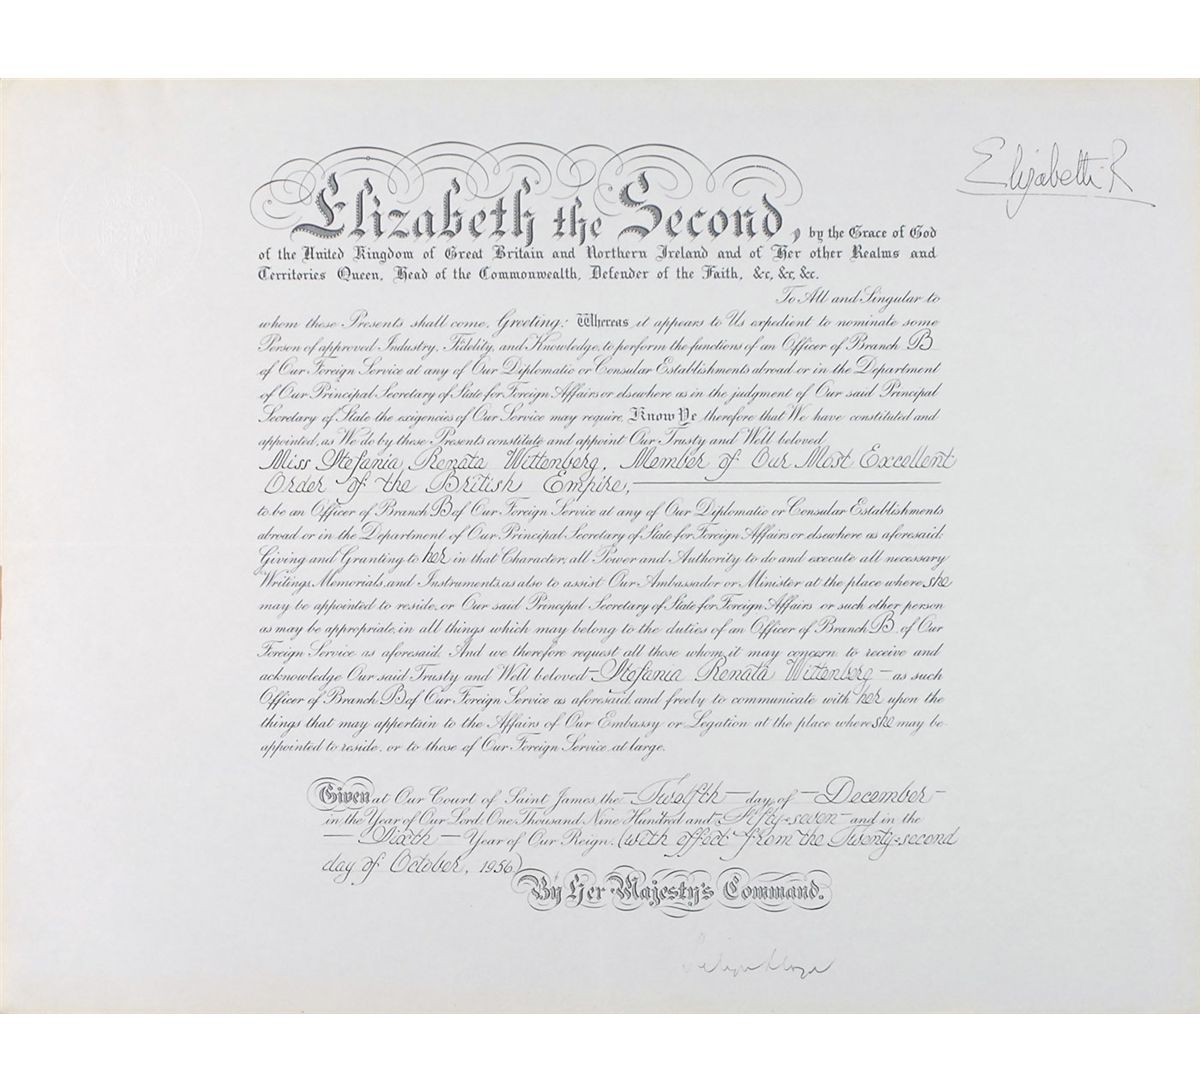 Elizabeth R
Elizabeth the Second, by the Grace of God
of the United Kingdom of Great Britain and Northern Ireland and of Her other Realms and
Territories Queen, Head of the Commonwealth, Defender of the Faith, &c, &c, &c.
To All and Singular to
whom these Presents shall come, Greeting: Whereas it appears to Us expedient to nominate some
Person of approved Industry, Fidelity, and Knowledge, to perform the functions of an Officer of Branch B
of Our Foreign Service at any of Our Diplomatic or Consular Establishments abroad or in the Department
of Our Principal Secretary of State for Foreign Affairs or elsewhere as in the judgment of Our said Principal
Secretary of State the exigencies of Our Service may require Know Ye therefore that We have constituted and
appointed, as We do by these Presents constitute and appoint Our Trusty and Well beloved
Miss Stefania Renata Wittenberg, Member of Our Most Excellent
Order of the British Empire,
to be an Officer of Branch B of Our Foreign Service at any of Our Diplomatic or Consular Establishments
abroad or in the Department of Our Principal Secretary of State for Foreign Affairs or elsewhere as aforesaid:
Giving and Granting to her in that Character, all Power and Authority to do and execute all necessary
Writings, Memorials, and Instruments, as also to assist Our Ambassador or Minister at the place where she
may be appointed to reside, or Our said Principal Secretary of State for Foreign Affairs or such other person
as may be appropriate, in all things which may belong to the duties of an Officer of Branch B of Our
Foreign Service as aforesaid. And we therefore request all those whom it may concern to receive and
acknowledge Our said Trusty and Well beloved - Stefania Renata Wittenberg - as such
Officer of Branch B of Our Foreign Service as aforesaid, and freely to communicate with her upon the
things that may appertain to the Affairs of Our Embassy or Legation at the place where she may be
appointed to reside, or to those of Our Foreign Service at large.
Given at Our Court of Saint James, the - Twelfth - day of - December -
in the Year of Our Lord, One Thousand Nine Hundred and - Fifty-seven - and in the
- Sixth - Year of Our Reign. (with effect from the Twenty-second
day of October, 1956)
By Her Majesty's Command.